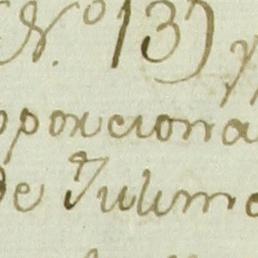 (N.º 13) y
oporciona
de Julime